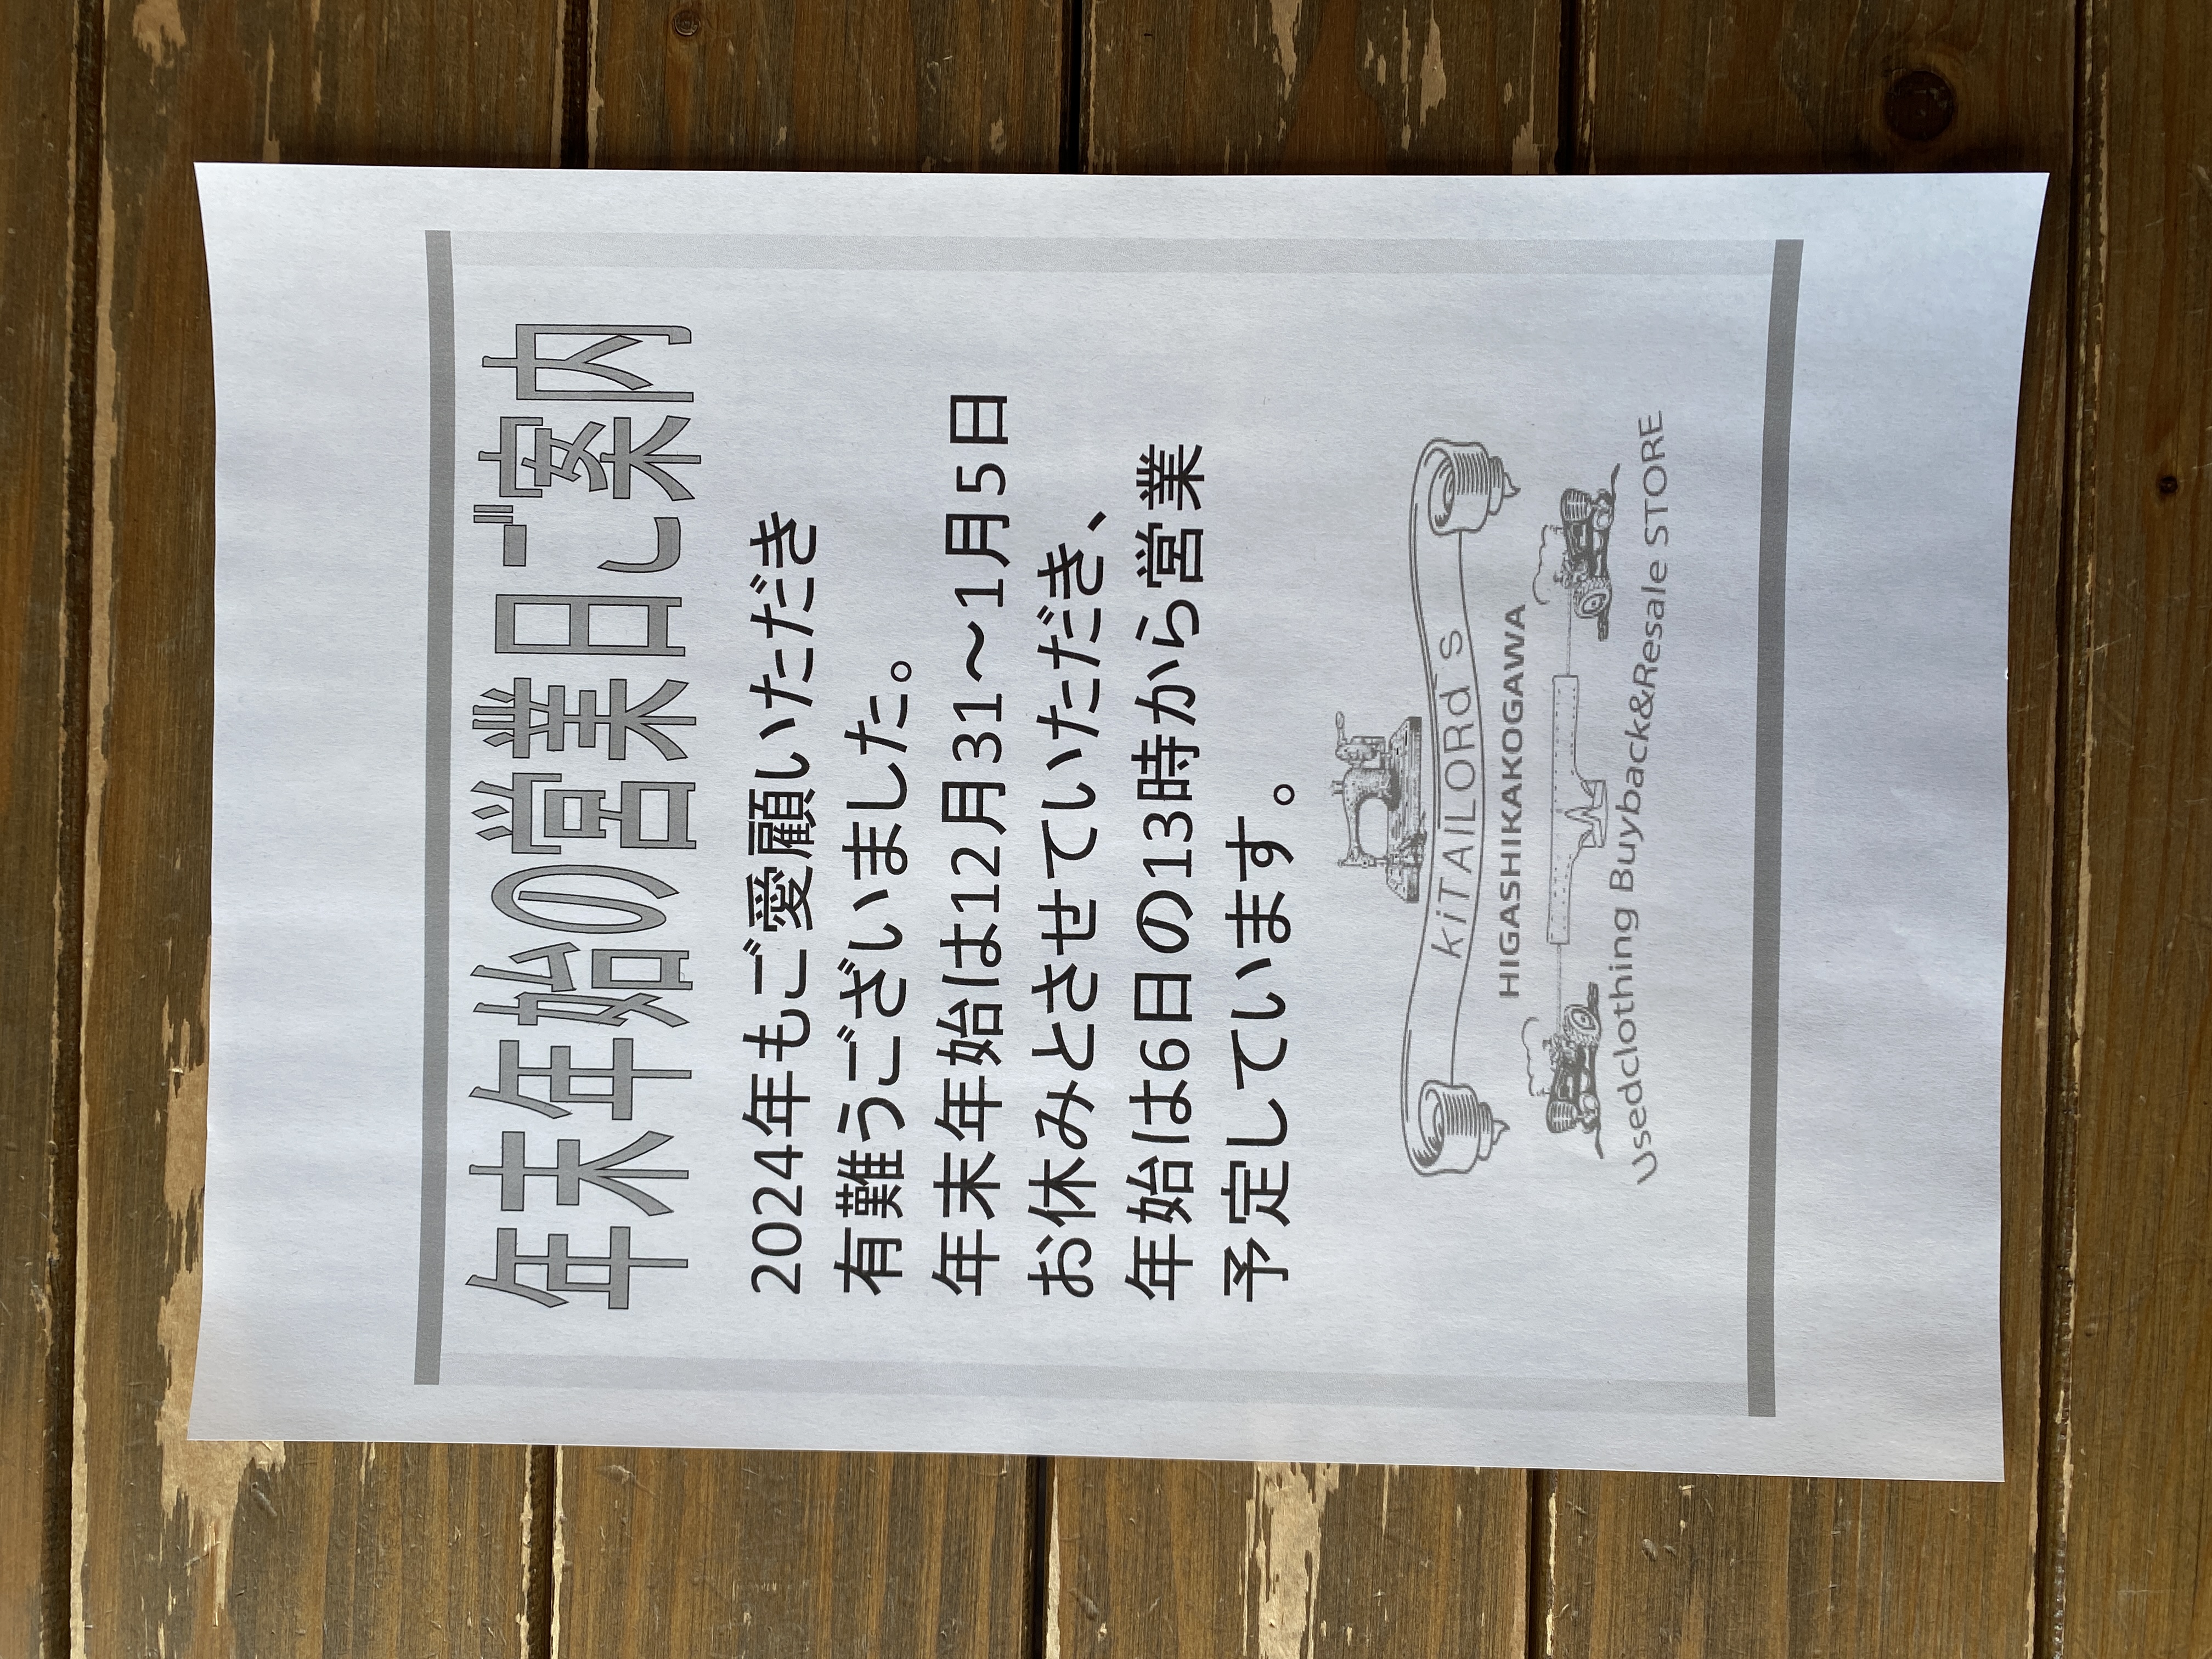 年末年始の営業日ご案内
2024年もご愛顧いただき
有難うございました。
年末年始は12月31～1月5日
お休みとさせていただき、
年始は6日の13時から営業
予定しています。
kiTAILORd's
HIGASHIKAKOGAWA
Usedclothing Buyback&Resale STORE